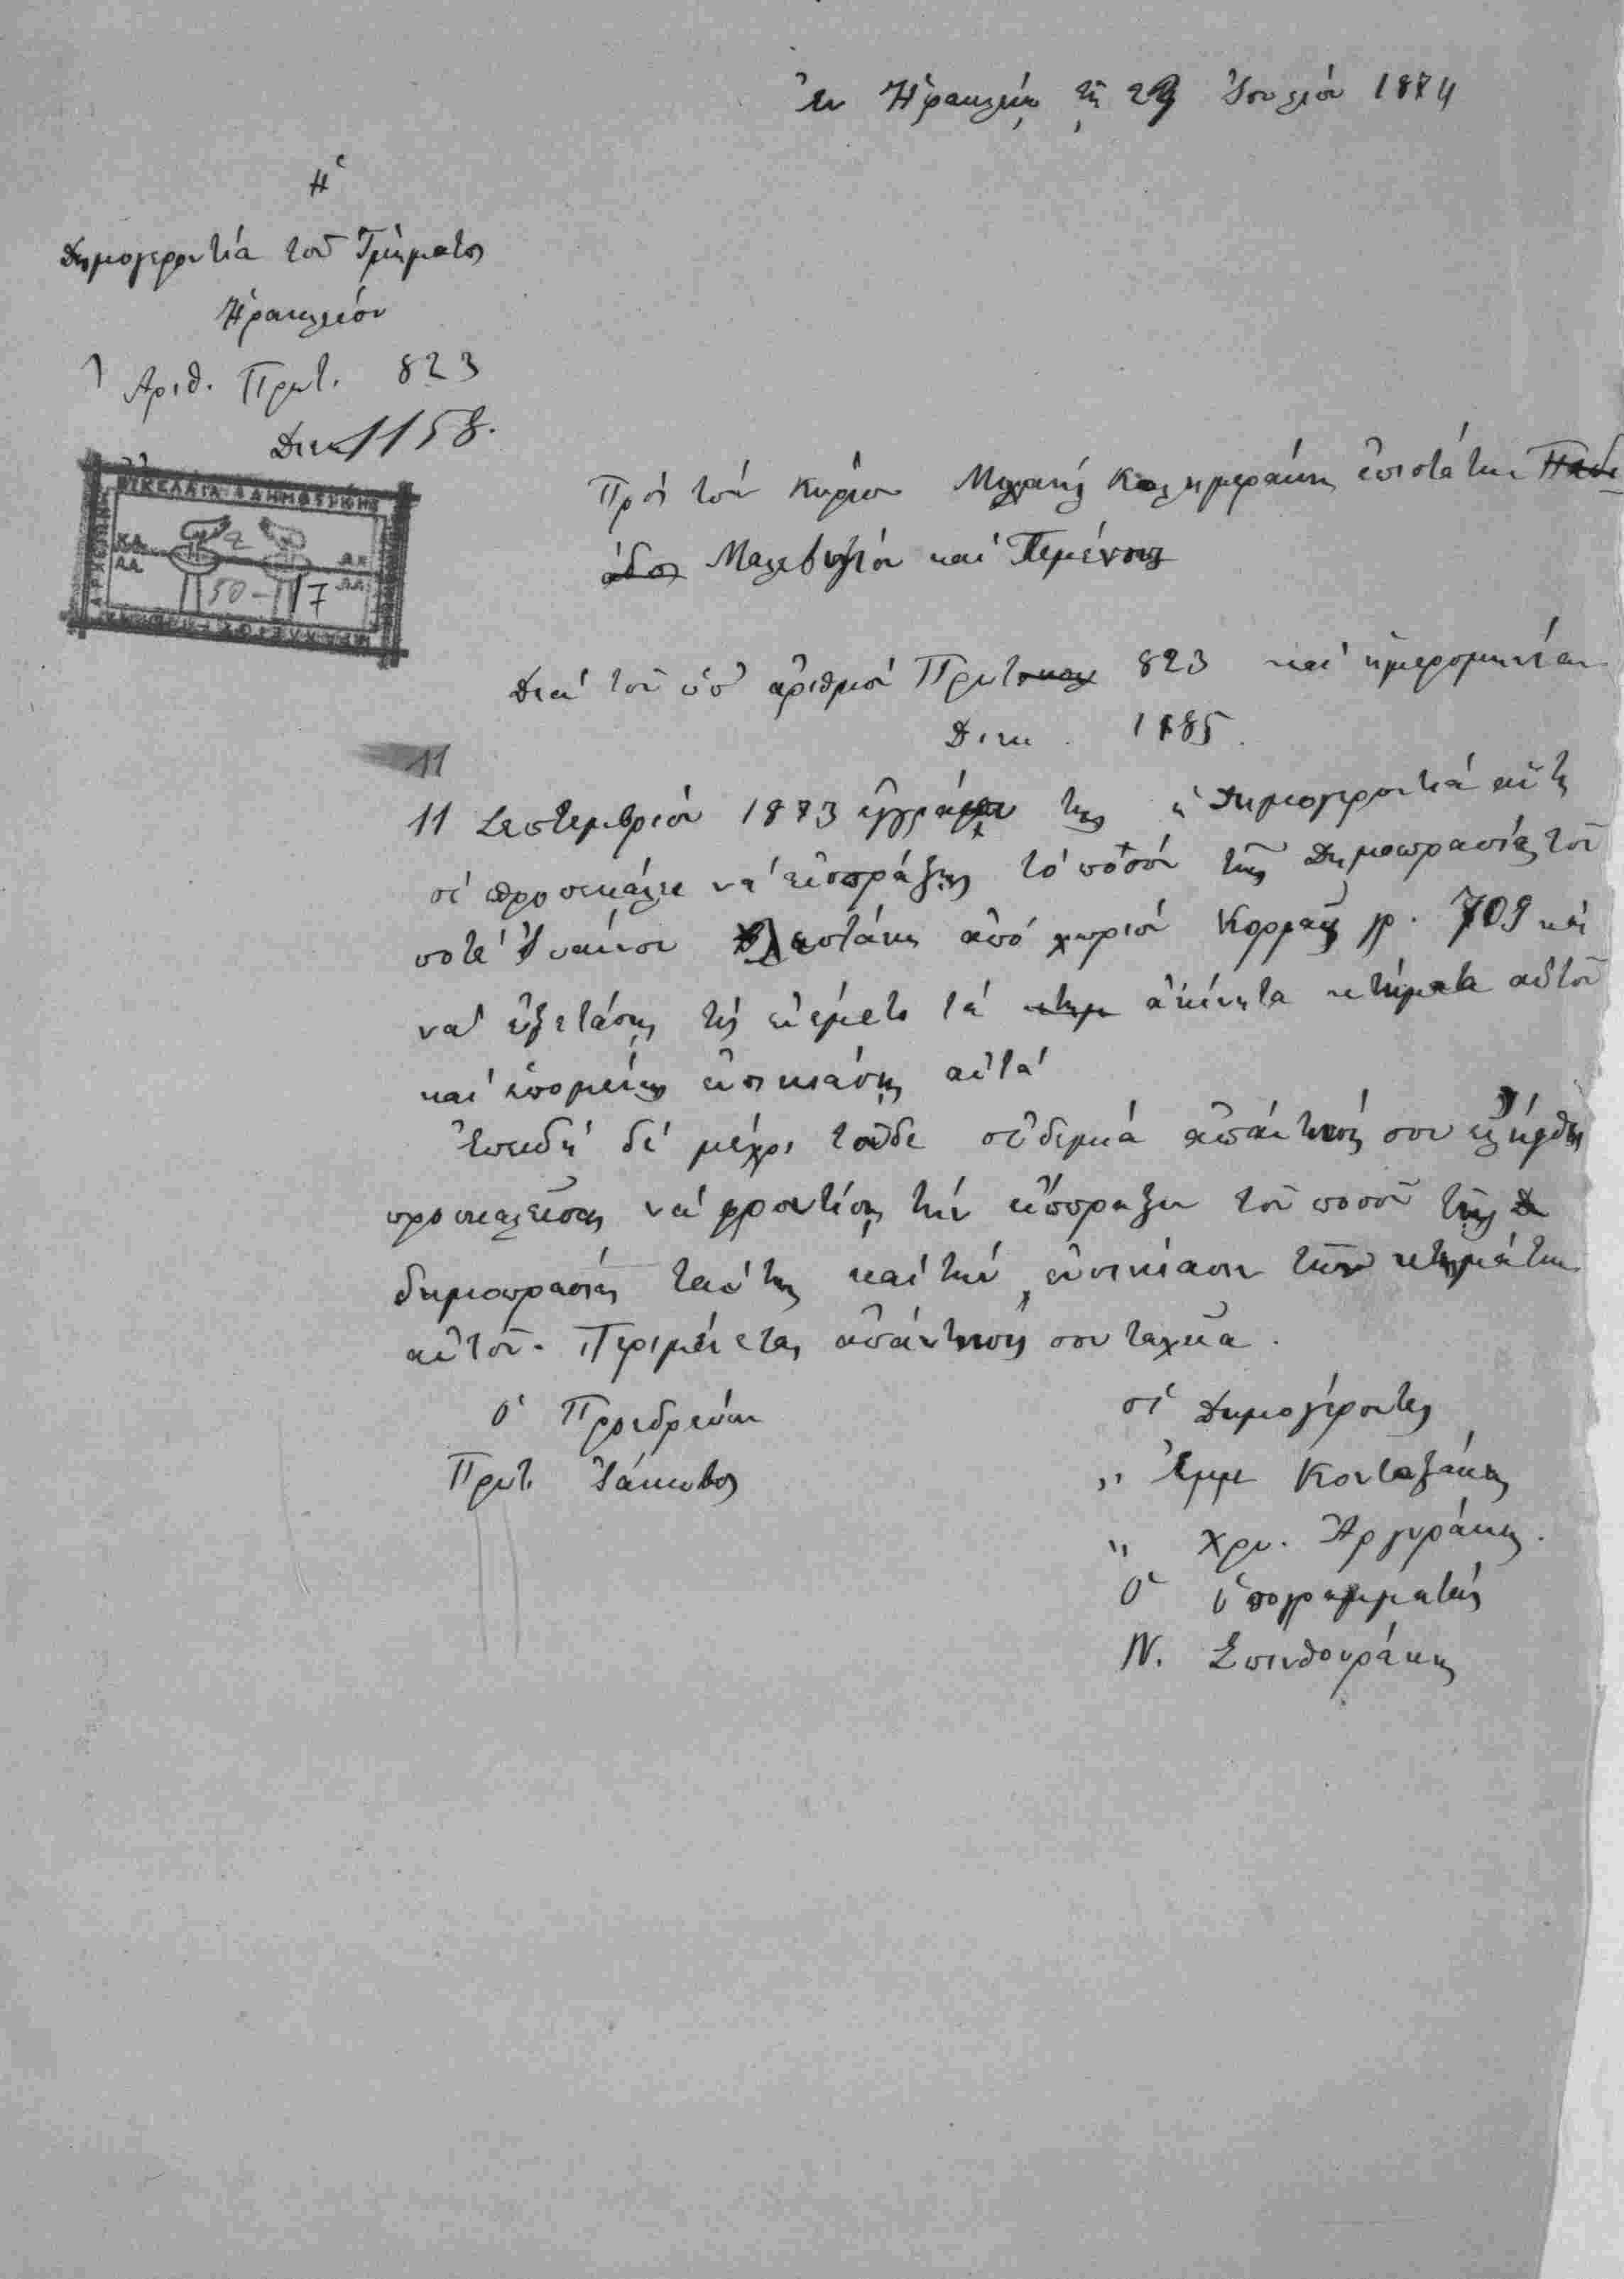 Ἐν Ἡρακλείῳ τῇ 29 Ἰουλίου 1874
Ἡ
Δημογεροντία τοῦ Τμήματος
Ἡρακλείου
Ἀριθ. Πρωτ. 823
Διεκ 1158.
ΒΙΚΕΛΑΙΑ ΔΗΜΟΤΙΚΗ
2
50-17
Πρός τόν Κύριον Μιχαήλ Καλημεράκην ἐπιστάτην Πεδι
άδος Μαλεβυζίου καί Τεμένους
Διά τοῦ ὑπ' ἀριθμόν Πρωτοκολ 823 καί ἡμερομηνίαν
Διεκ. 1185.
11
11 Σεπτεμβρίου 1873 ἐγγράφου της ἡ Δημογεροντία αὕτη
σέ προσεκάλει νά εἰσπράξῃς τό ποσόν τῆς Δημοπρασίας τοῦ
ποτέ ἀπό χωρίον γρ. 709 καί
νά ἐξετάσῃς τίς νέμεται τά κτημ ἀκίνητα κτήματα αὐτοῦ
καί ἑπομένως ἐνοικιάσῃς αὐτά
Ἐπειδή δέ μέχρι τοῦδε οὐδεμία ἀπάντησίς σου ἐλήφθη
προσκαλεῖσαι νά φροντίσῃς τήν εἴσπραξιν τοῦ ποσοῦ τῆς Δ
δημοπρασίας ταύτης καί τήν ἐνοικίασιν τῶν κτημάτων
αὐτοῦ. Περιμένεται ἀπάντησίς σου ταχεῖα.
Ὁ Προεδρεύων
Πρωτ. Ἰάκωβος
οἱ Δημογέροντες
" Ἐμμ Κονταξάκης
" Χρ. Ἀργυράκης.
Ὁ ὑπογραμματεύς
Ν. Σπινθουράκης